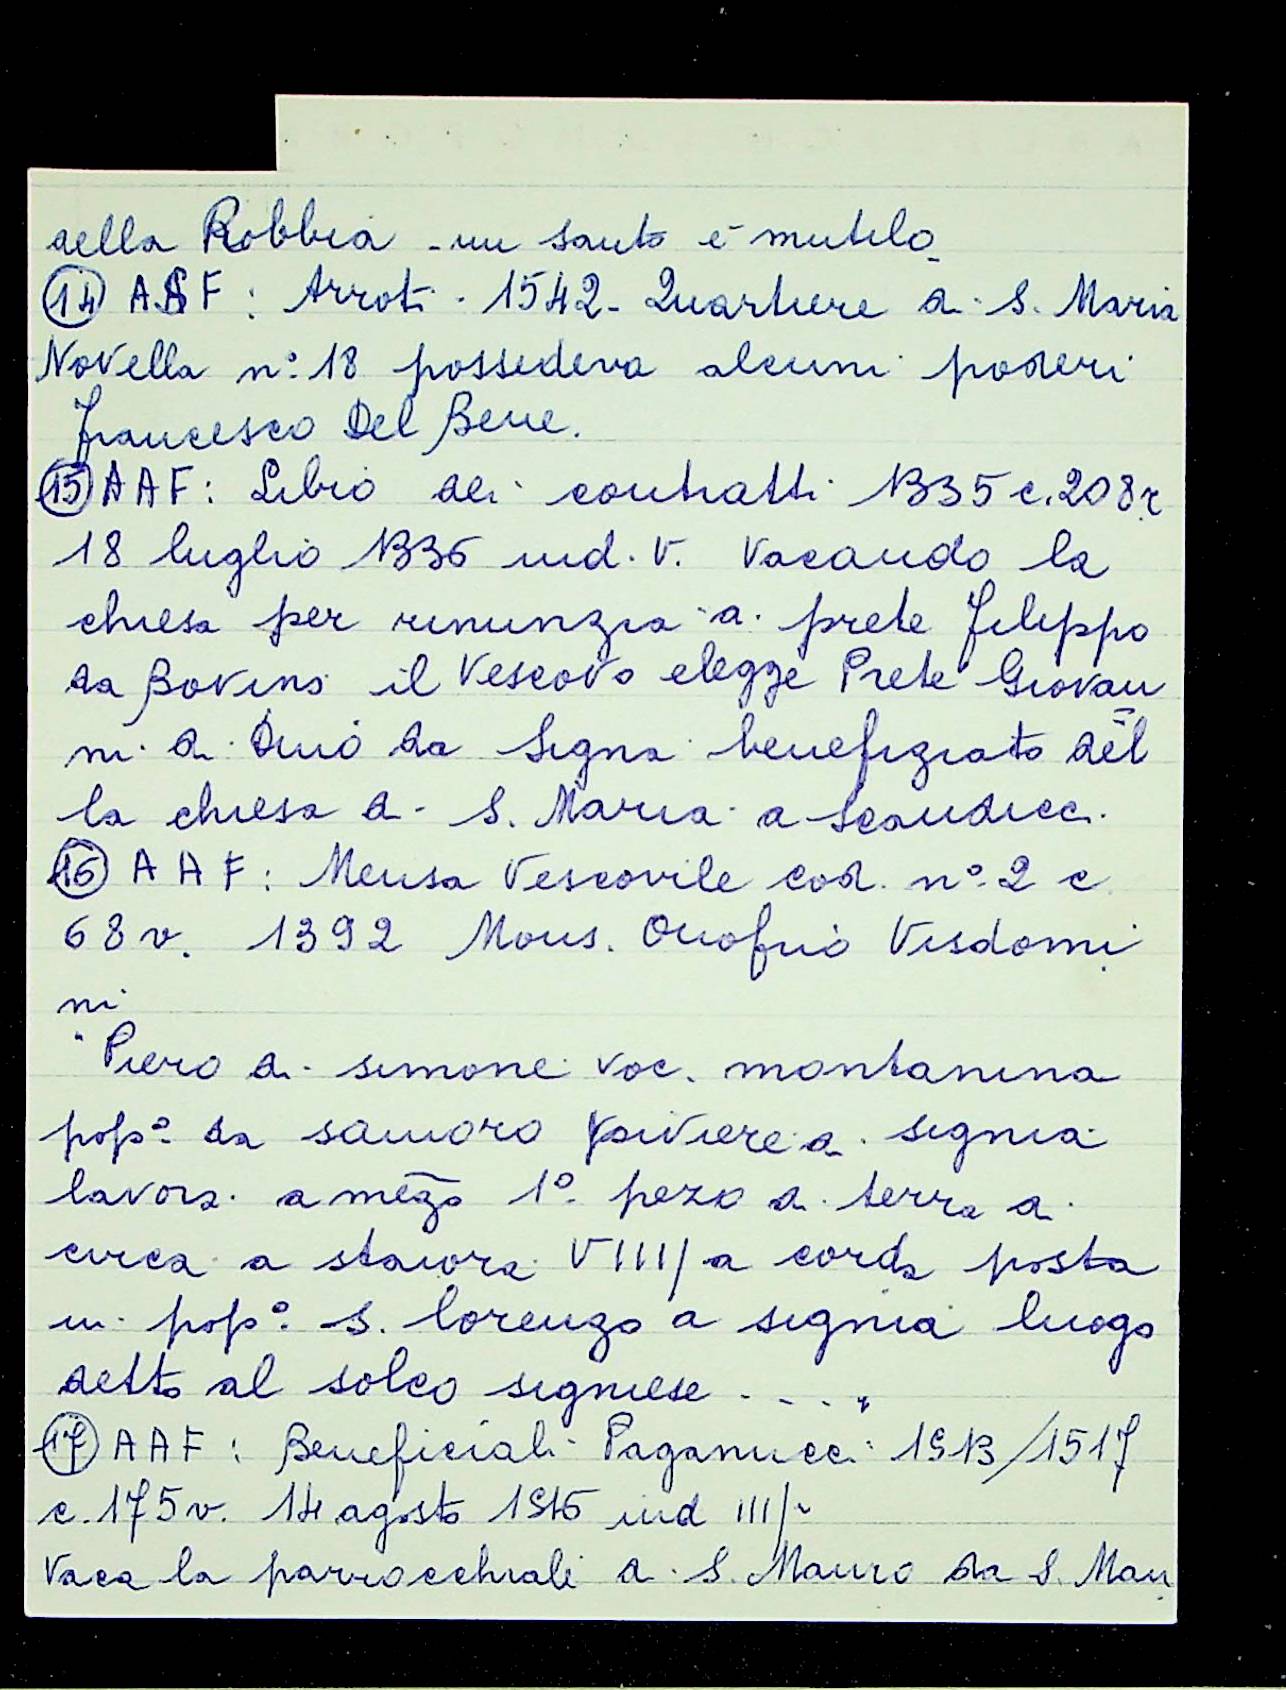 della Robbia - un santo è mutilo -
(14) ASF: Arroti. 1542- Quartiere di S. Maria
Novella n° 18 possedeva alcuni poderi
Francesco Del Bene.
(15) AAF: Libro dei contratti 1335 c. 208r
18 luglio 1336 ind. V. Vacando la
chiesa per rinunzia di prete Filippo
da Bovino il Vescovo elegge Prete Giovan
ni di Duio da Signa benefiziato del
la chiesa di S. Maria a Scandicci.
(16) AAF: Mensa Vescovile cod. n° 2 c
68v. 1392 Mons. Onofrio Visdomi
ni
"Piero di simone voc. montanina
pop° da samoro piviere di signia
lavora a mezo 1° pezo di terra di
circa a staiora VIII/ a corda posta
in pop° S. lorenzo a signia luogo
detto al solco signiese . . . . "
(17) AAF: Beneficiali Paganucci 1513/1517
c. 175v. 14 agosto 1515 ind III/
Vaca la parrocchiali di S. Mauro da S. Mau